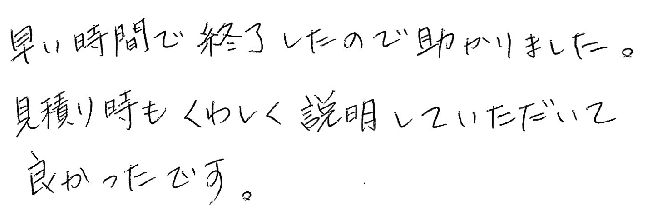 早い時間で終了したので助かりました。
見積り時もくわしく説明していただいて
良かったです。